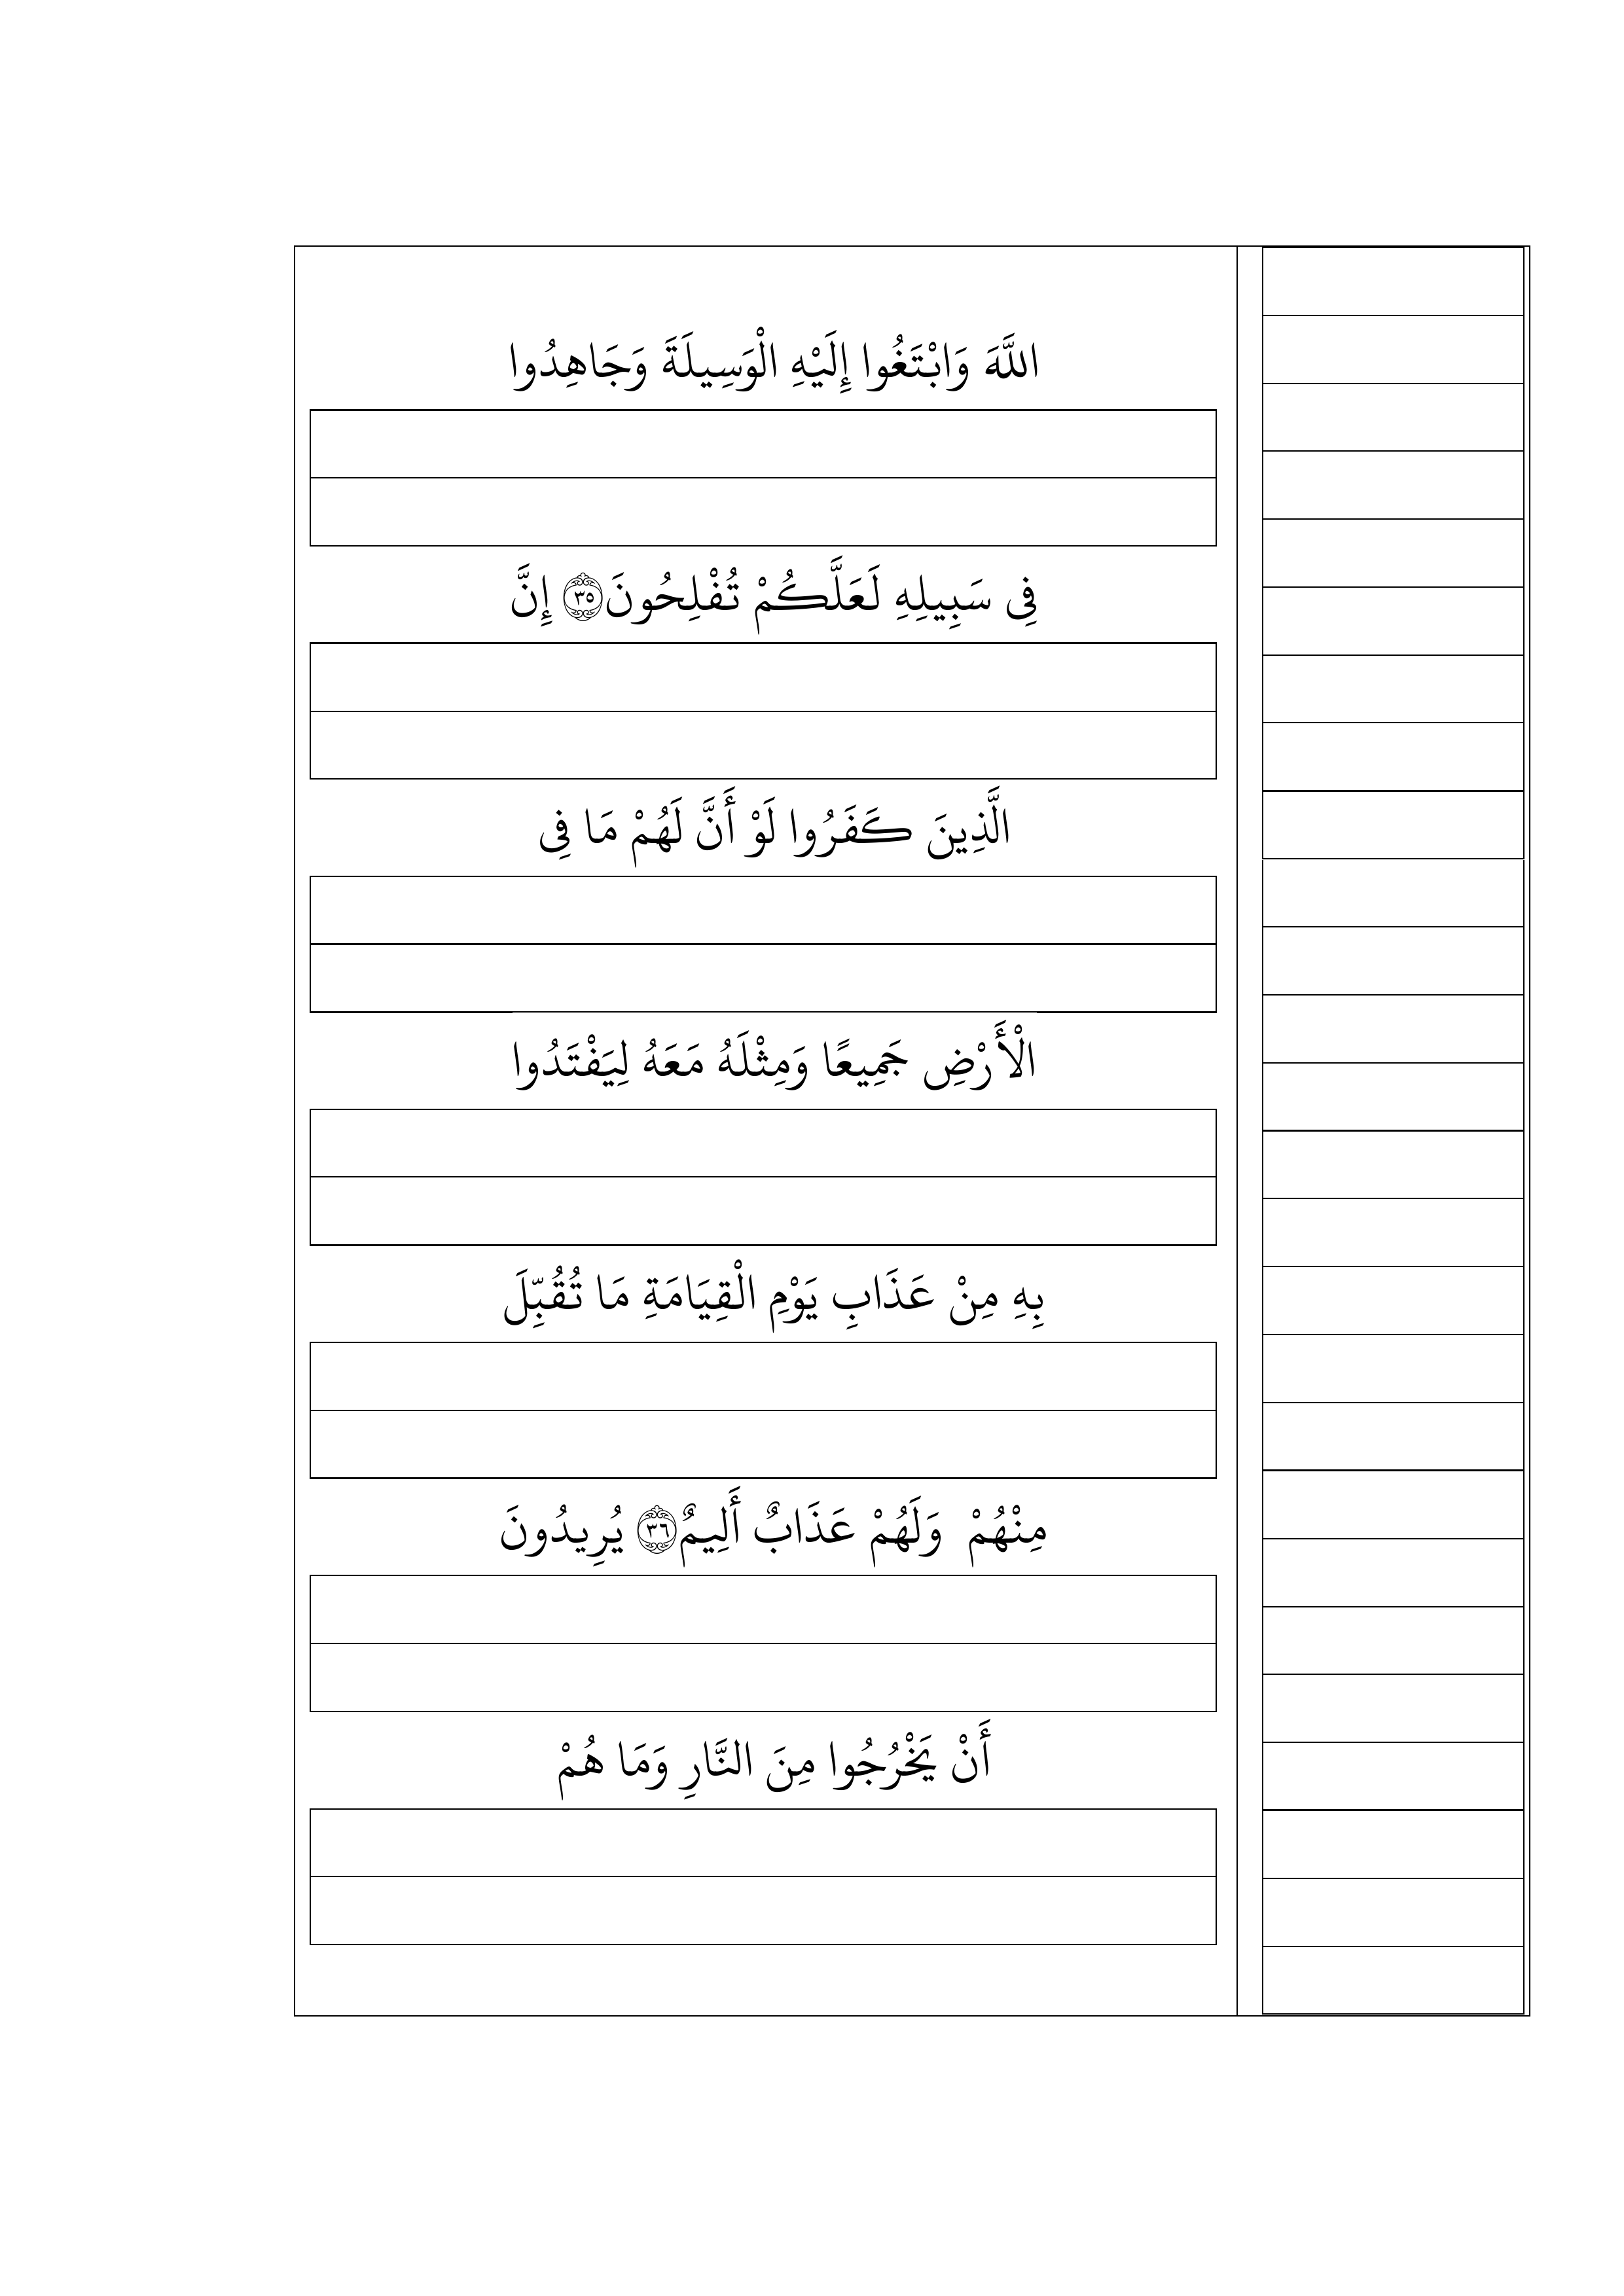 اللَّهَ وَابْتَغُوا إِلَيْهِ الْوَسِيلَةَ وَجَاهِدُوا
فِى سَبِيلِهِ لَعَلَّكُمْ تُفْلِحُونَ ۝٣٥ إِنَّ
الَّذِينَ كَفَرُوا لَوْ أَنَّ لَهُمْ مَا فِى
الْأَرْضِ جَمِيعًا وَمِثْلَهُ مَعَهُ لِيَفْتَدُوا
بِهِ مِنْ عَذَابِ يَوْمِ الْقِيَامَةِ مَا تُقُبِّلَ
مِنْهُمْ وَلَهُمْ عَذَابٌ أَلِيمٌ ۝٣٦ يُرِيدُونَ
أَنْ يَخْرُجُوا مِنَ النَّارِ وَمَا هُمْ